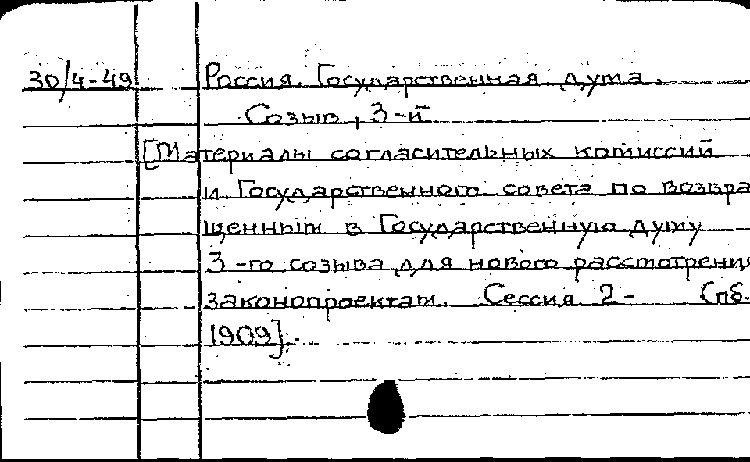 30/4-49 Россия. Государственная дума.
Созыв, 3-й
[Материалы согласительных комиссий
и Государственного совета по возвра
щенным в Государственную думу
3-го созыва для нового рассмотрения
законопроектам. Сессия 2- Спб.
1909].